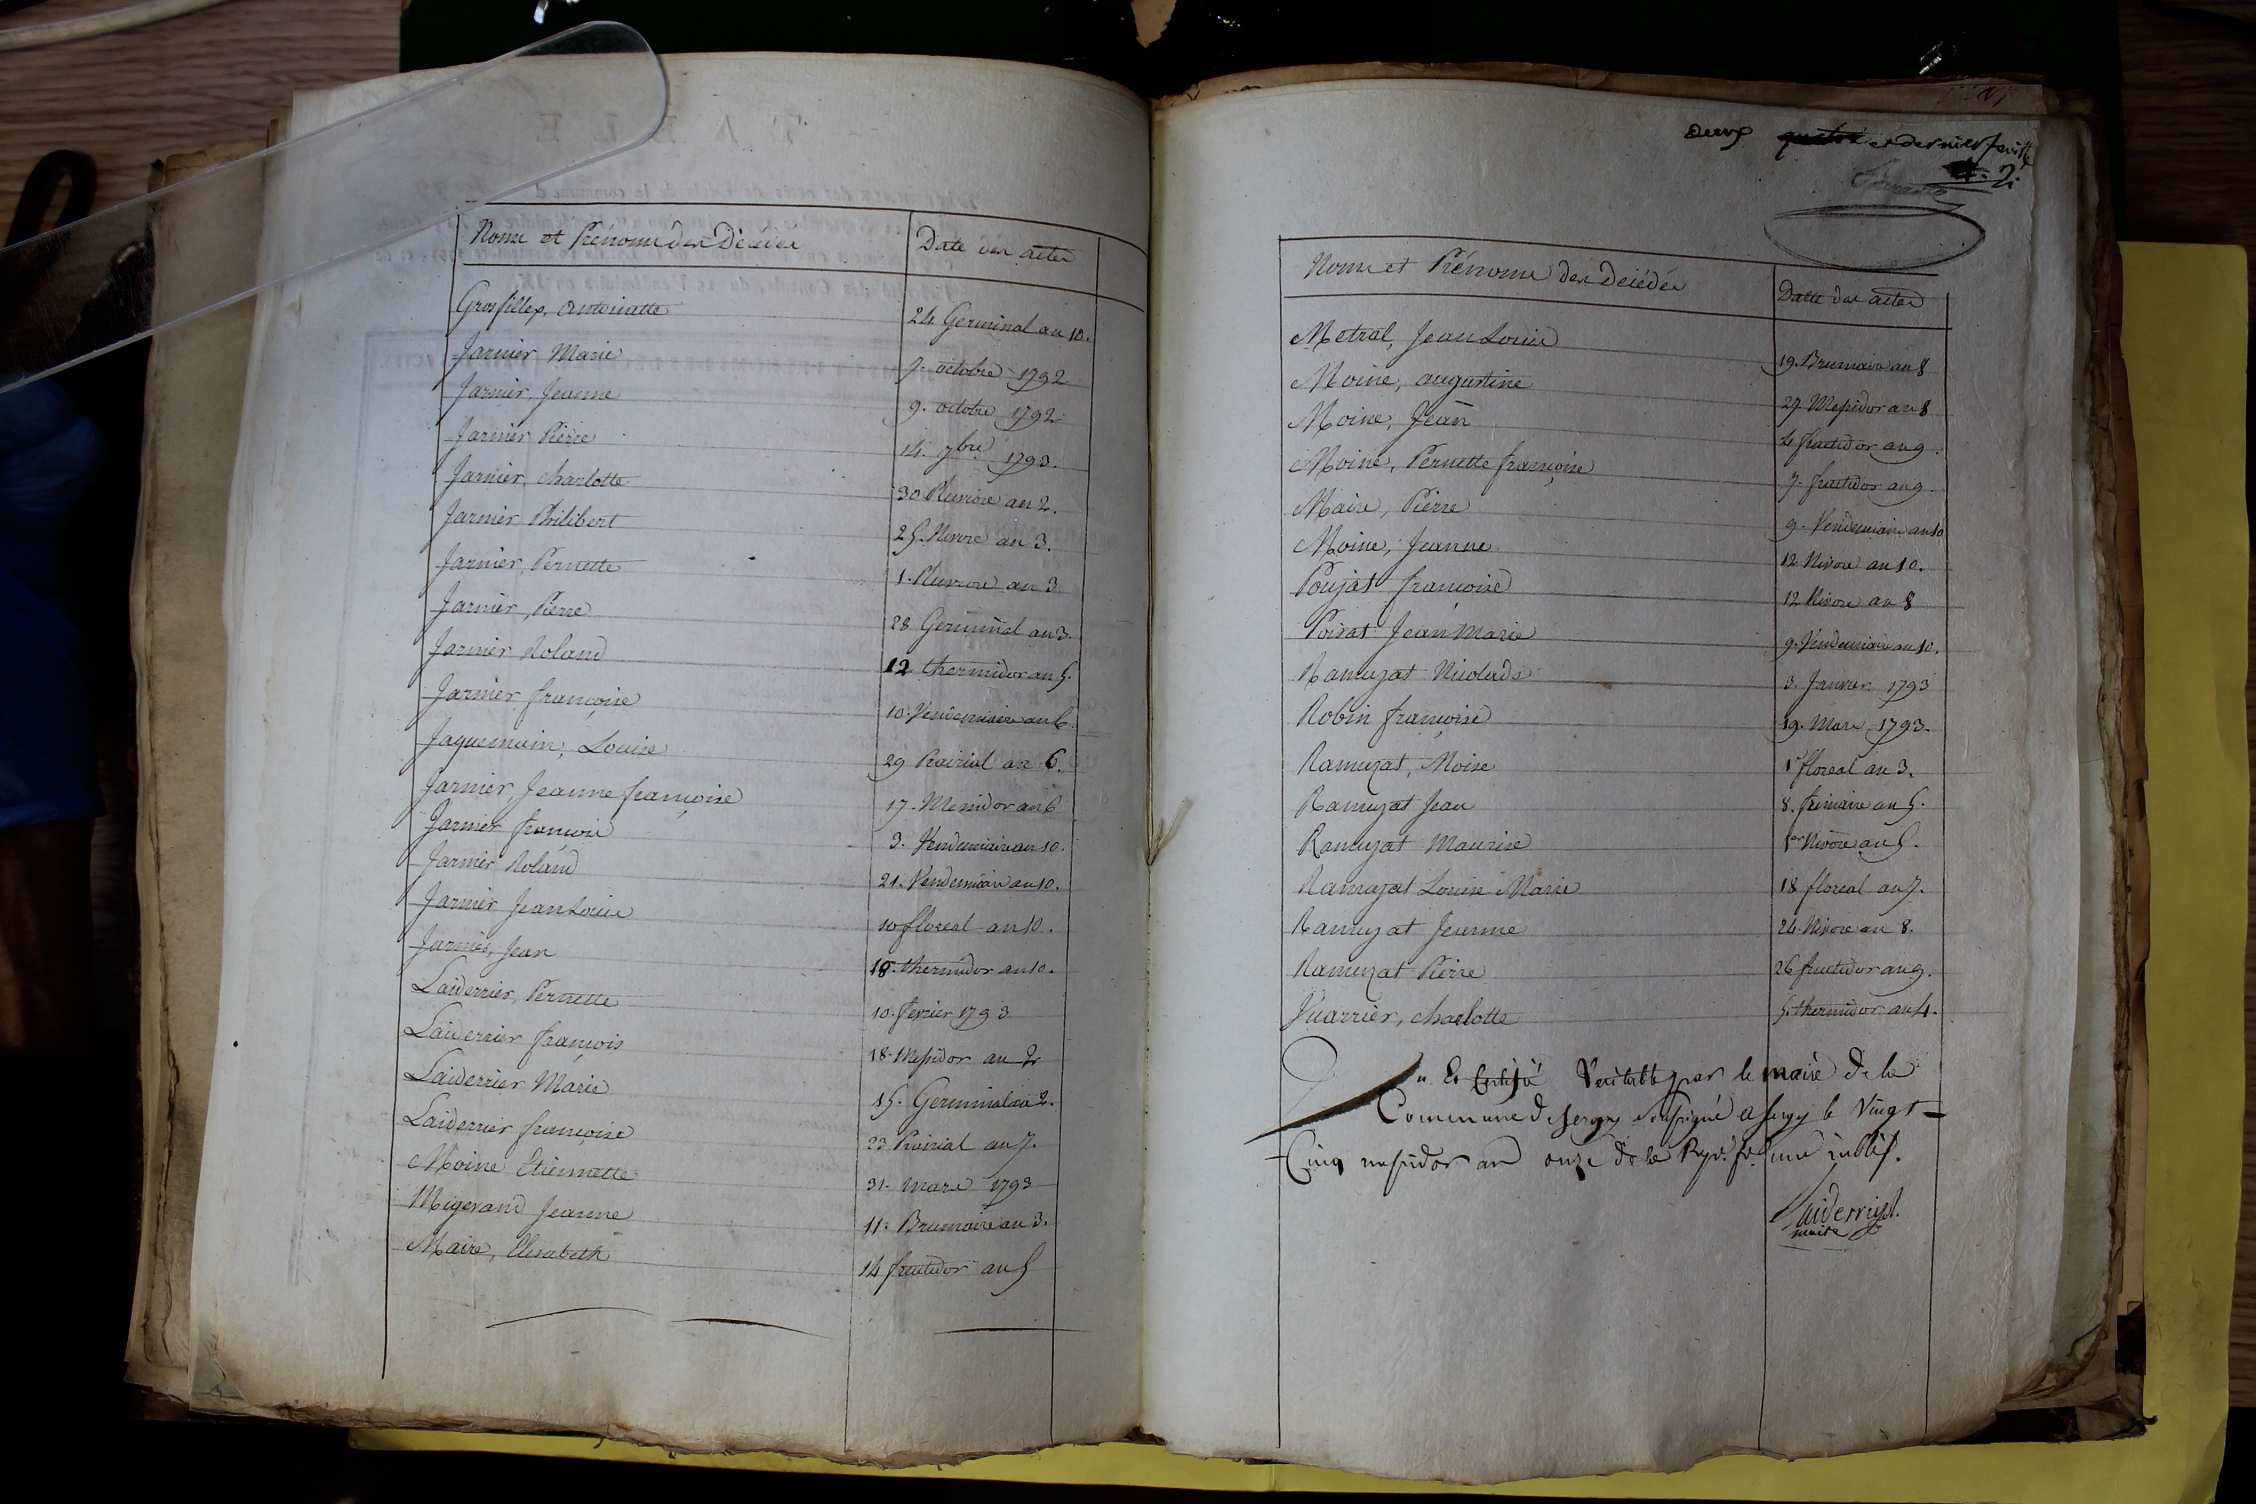 Noms et Prénoms des Décédés Date des actes
Grosfillex, antoinette 24 Germinal an 10.
Jarnier Marie 7. octobre 1792
Jarnier, Jeanne 9. octobre 1792
Jarnier Pierre 14. 7bre 1793.
Jarnier, charlotte 30 Pluviose an 2.
Jarnier Philibert 25. Nivose an 3.
Jarnier, Pernette 1. Pluviose an 3
Jarnier, Pierre 28 Germinal an 3.
Jarnier Roland 12 thermidor an 5.
Jarnier françoise 10. Vendemiaire an 6.
Jaquemain, Louise 29 Prairial an 6.
Jarnier, Jeanne françoise 17. Messidor an 6
Jarnier françois 3. Vendemiaire an 10.
Jarnier Roland 21. Vendemiaire an 10.
Jarnier Jean Louis 10 floreal an 10.
Jarnier, Jean 18. thermidor an 10.
Laiderrier, Pernette 10. fevrier 1793
Laiderrier françois 18. Messidor an 2
Laiderrier Marie 15. Germinal an 2.
Laiderrier françoise 23 Prairial an 7.
Moine Etiennette 31. mars 1793
Migerand Jeanne 11. Brumaire an 3.
Maire, Elisabeth 14 fructidor an 5
deux et dernier feuillet
2.
Noms et Prénoms des Décédés Date des actes
Metral, Jean Louis 19. Brumaire an 8
Moine, augustine 27 Messidor an 8
Moine, Jean 4 fructidor an 9.
Moine, Pernette françoise 7. fructidor an 9.
Maire, Pierre 9. Vendemiaire an 10
Moine, Jeanne 12 Nivose an 10.
Poujat françoise 12 Nivose an 8
Poirat Jean Marie 9. Vendemiaire an 10.
Ramuzat Nicolas 3. Janvier 1793
Robin françoise 19. Mars 1793.
Ramuzat, Moise 1r floreal an 3.
Ramuzat Jean 8. frimaire an 5.
Ramuzat Maurise 1er Nivose an 5.
Ramuzat Louise Marie 18 floreal an 7.
Ramuzat Jeanne 24. Nivose an 8.
Ramuzat Pierre 26 fructidor an 9.
Vuarrier, charlotte 5. thermidor an 4.
Certifié Veritable par le maire de la
Commune de Sergy soussigné a Sergy le Vingt
Cinq messidor an onze de la Rep. fr. une
Laiderrier
maire